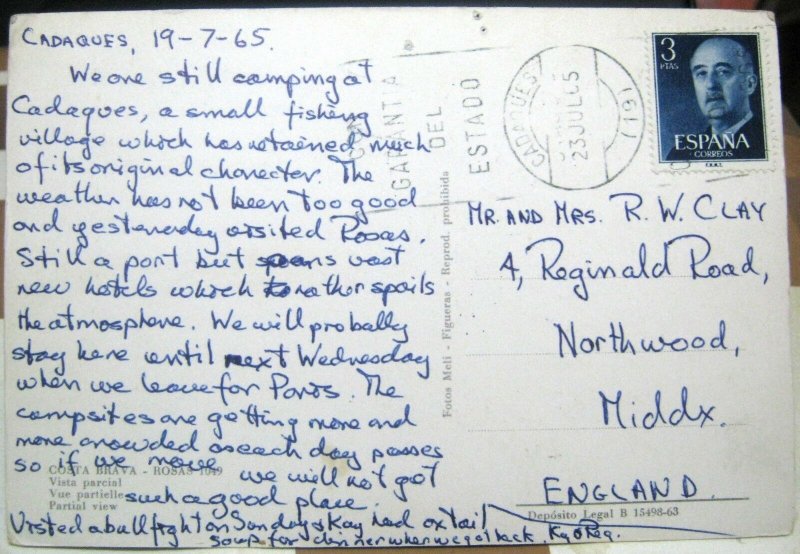 CADAQUES, 19-7-65.
We are still camping at
Cadaques, a small fishing
village which has retained much
of its original character. The
weather has not been too good
and yesterday visited Rosas.
Still a port but vast
new hotels which rather spoils
the atmosphere. We will probably
stay here until next Wednesday
when we leave for Paris. The
campsites are getting more and
more crowded as each day passes
so if we move we will not get
such a good place.
Visted a bullfight on Sunday & Kay had oxtail
soup for dinner when we got back. Kay & Reg.
COSTA BRAVA - ROSAS 1049
Vista parcial
Vue partielle
Partial view
Fotos Meli - Figueras - Reprod. prohibida
GARANTIA
DEL
ESTADO
CADAQUES
23 JUL 65
(19)
3
PTAS
ESPAÑA
CORREOS
MR. AND MRS. R. W. CLAY
4, Reginald Road,
Northwood,
Middx.
ENGLAND.
Depósito Legal B 15498-63